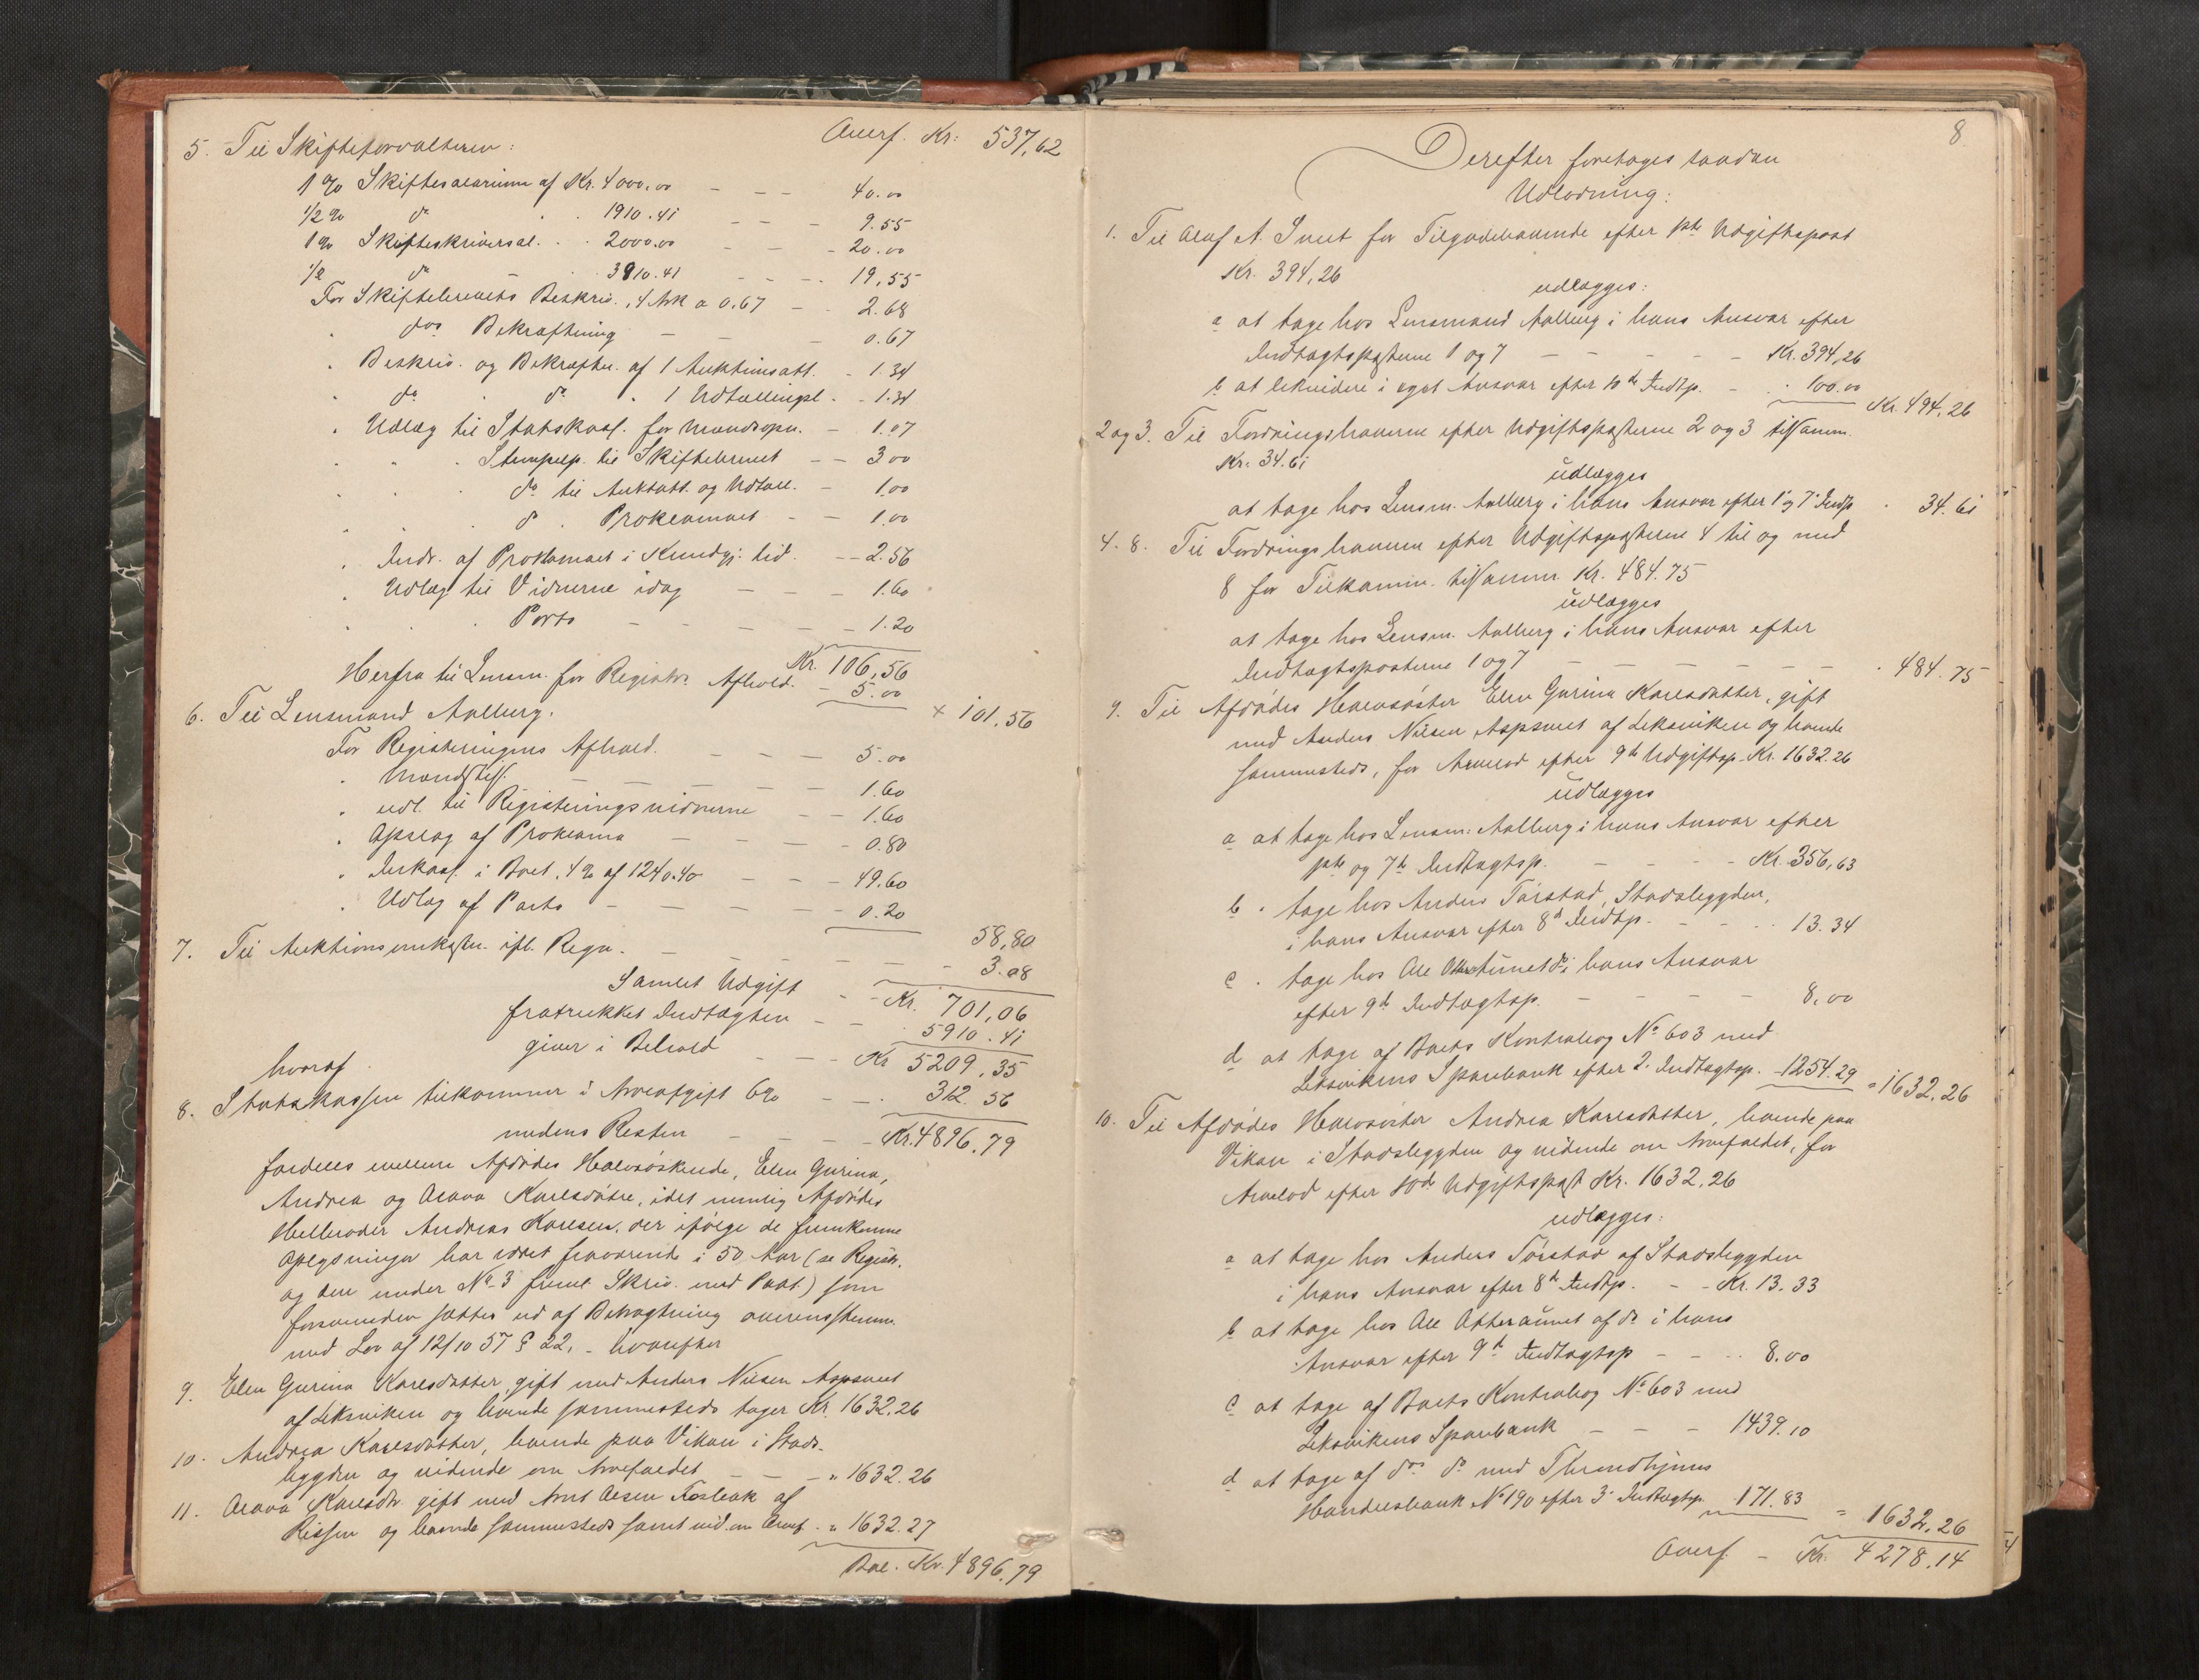 Overf. Kr: 537,62
5. Til Skifteforvalteren:
1 % Skiftesalarium af Kr. 4000.00 - - - 40.00
1/2 % do . . 1910.41 - - - 9.55
1 % Skifteskriversal. . . 2000.00 - - - 20.00
1/2 do - . 3910.41 - - - 19,55
For Skiftebrevets Beskriv., 4 Ark a 0.67 - - 2.68
" dos Bekræftning - - 0.67
" Beskriv. og Bekræftn. af 1 Auktionsatt. - 1.34
" do do " 1 Udtællingsl. - 1.34
" Udlæg til Statskass. for Mandsopn. - 1.07
" " " Stempelp. til Skiftebrevet - - 3 00
" " " do til Auktatt. og Udtæll. - 1.00
" " " do " Proklamaet - - 1.00
" Indr. af Proklamaet i Kundgj. tid. - - 2.56
" Udlæg til Vidnerne idag - - - 1.60
" " " Porto - - - - - 1.20
Kr. 106,56
Herfra til Lensm. for Registr. Afhold. - 5.00
× 101.56
6. Til Lensmand Aalberg.
For Registeringens Afhold. - - - 5.00
" Mandstils. - - - - 1.60
" udl. til Registeringsvidnerne - - 1.60
" Opslag af Proklama - - - 0.80
" Inkass. i Boet, 4 % af 1240.40 - - - 49.60
" Udlæg af Porto - - - - - 0.20
58,80
7. Til Auktionsomkostn. ifl. Regn. - - - - - - 3.08
Samlet Udgift - - Kr. 701,06
fratrukket Indtægten - - 5910.41
giver i Behold - - - Kr 5209,35
hvoraf
8. Statskassen tilkommer i Arveafgift 6 % - - . 312.56
medens Resten - - - - Kr. 4896.79
fordeles mellem Afdødes Halvsøskende, Elen Gurina,
Andrea og Olava Karlsdøtre, idet nemlig Afdødes
Helbroder Andreas Karlsen, der ifølge de fremkomne
Oplysninger har været fraværende i 50 Aar (se Registr.
og den under No 3 freml. Skriv. med Paat.) som
forsvunden sættes ud af Betragtning overensstemm.
med Lov af 12/10 57 § 22, - hvorefter
9. Elen Gurina Karlsdatter, gift med Anders Nilsen Aspsunet
af Leksviken og boende sammesteds tager Kr. 1632.26
10. Andrea Karlsdatter, boende paa Vikan i Stads-
bygden og vidende om Arvefaldet - - - " 1632.26
11. Olava Karlsdtr. gift med Arnt Olsen af
Rissen og boende sammesteds samt vid. om Arvef. . " 1632.27
Bal. Kr. 4896.79
8
Derefter foretages saadan
Udlodning:
1. Til Oluf A. for Tilgodehavende efter 1ste Udgiftspost
Kr. 394,26
udlægges:
a at tage hos Lensmand Aalberg i hans Ansvar efter
Indtægtsposterne 1 og 7 - - - - - Kr. 394,26
b at likvidere i eget Ansvar efter 10de Indtp. - . 100.00
Kr. 494,26
2 og 3. Til Fordringshaverne efter Udgiftsposterne 2 og 3 tilsamm.
Kr. 34.61
udlægges
at tage hos Lensm. Aalberg i hans Ansvar efter 1 og 7 Indtp . 34.61
4.8. Til Fordringshaverne efter Udgiftsposterne 4 til og med
8 for Tilkomm. tilsamm. Kr. 484.75
udlægges
at tage hos Lensm. Aalberg i hans Ansvar efter
Indtægtsposterne 1 og 7 - - - - - - . 484.75
9. Til Afdødes Halvsøster Elen Gurina Karlsdatter, gift
med Anders Nilsen Aspsunet af Leksviken og boende
sammesteds, for Arvelod efter 9de Udgiftsp. Kr. 1632.26
udlægges
a at tage hos Lensm: Aalberg i hans Ansvar efter
1ste og 7de Indtægtsp. - - - - Kr. 356,63
b " tage hos Anders Tørstad, Stadsbygden,
i hans Ansvar efter 8de Indtp. - - - . 13.34
c " tage hos Ole do i hans Ansvar
efter 9de Indtægtsp. - - - - 8,00
d at tage af Boets Kontrabog No 603 med
Leksvikens Sparebank efter 2. Indtægtsp. - 1254.29 = 1632,26
10. Til Afdødes Halvsøster Andrea Karlsdatter, boende paa
Vikan i Stadsbygden og vidende om Arvefaldet, for
Arvelod efter 10de Udgiftspost Kr. 1632.26
udlægges:
a at tage hos Anders Tørstad af Stadsbygden
i hans Ansvar efter 8de Indtp. - - Kr. 13.33
b at tage hos Ole af do i hans
Ansvar efter 9de Indtægtsp - - - . 8.00
c at tage af Boets Kontrabog No 603 med
Leksvikens Sparebank - - - 1439.10
d at tage af dos do med Throndhjems
Handelsbank No 190 efter 3' Indtægtsp. 171.83
= 1632,26
Overf. - Kr. 4278.14